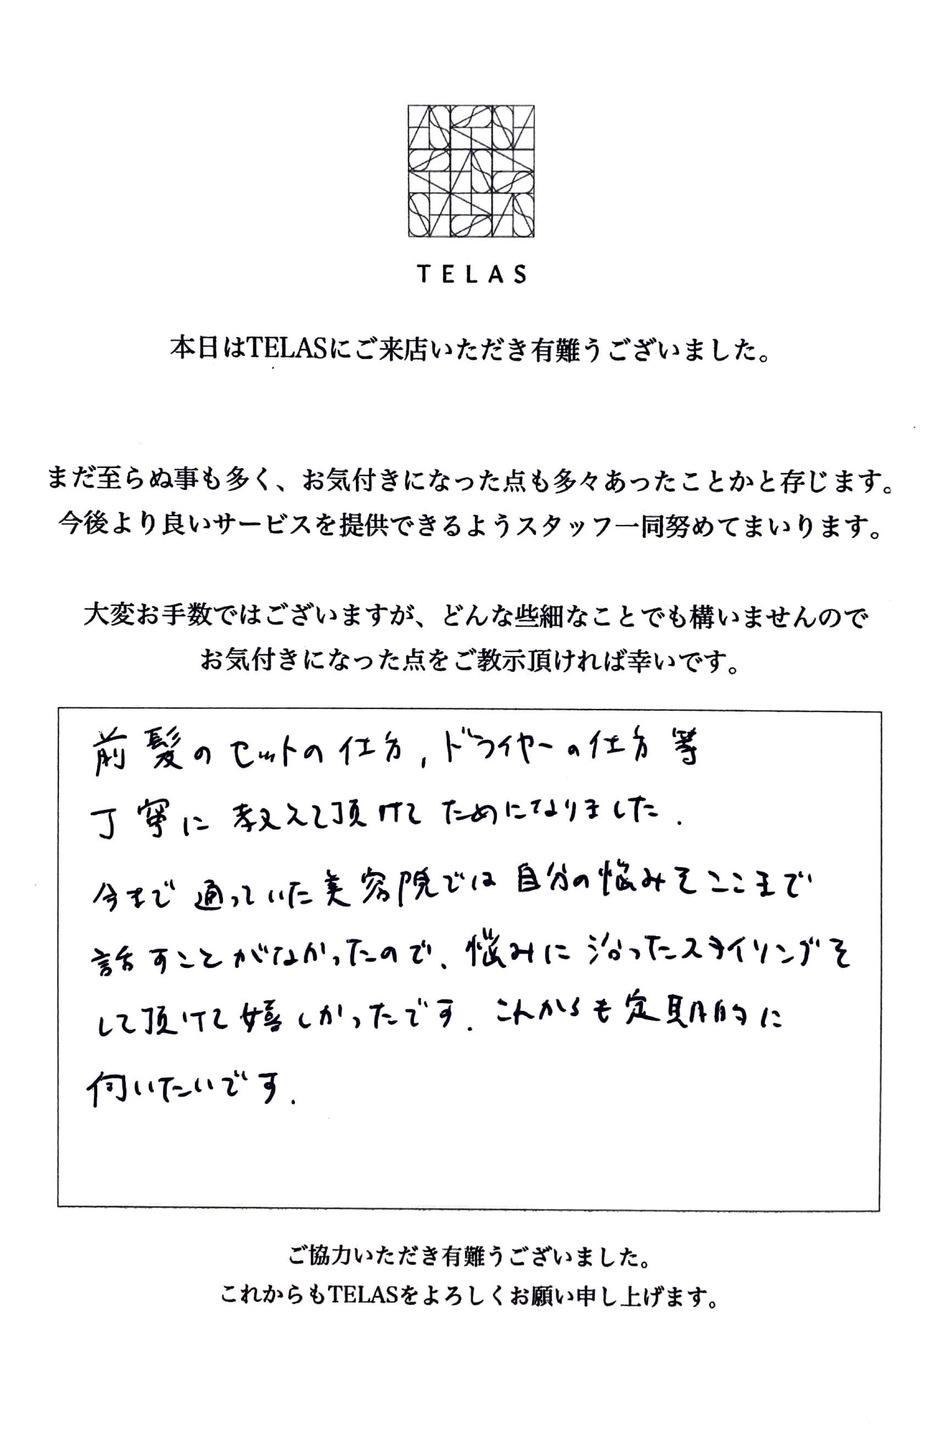 TELAS
本日はTELASにご来店いただき有難うございました。
まだ至らぬ事も多く、お気付きになった点も多々あったことかと存じます。
今後より良いサービスを提供できるようスタッフ一同努めてまいります。
大変お手数ではございますが、どんな些細なことでも構いませんので
お気付きになった点をご教示頂ければ幸いです。
前髪のセットの仕方,ドライヤーの仕方等
丁寧に教えて頂けてためになりました.
今まで通っていた美容院では自分の悩みをここまで
話すことがなかったので、悩みに沿ったスタイリングを
して頂けて嬉しかったです.これからも定期的に
伺いたいです.
ご協力いただき有難うございました。
これからもTELASをよろしくお願い申し上げます。